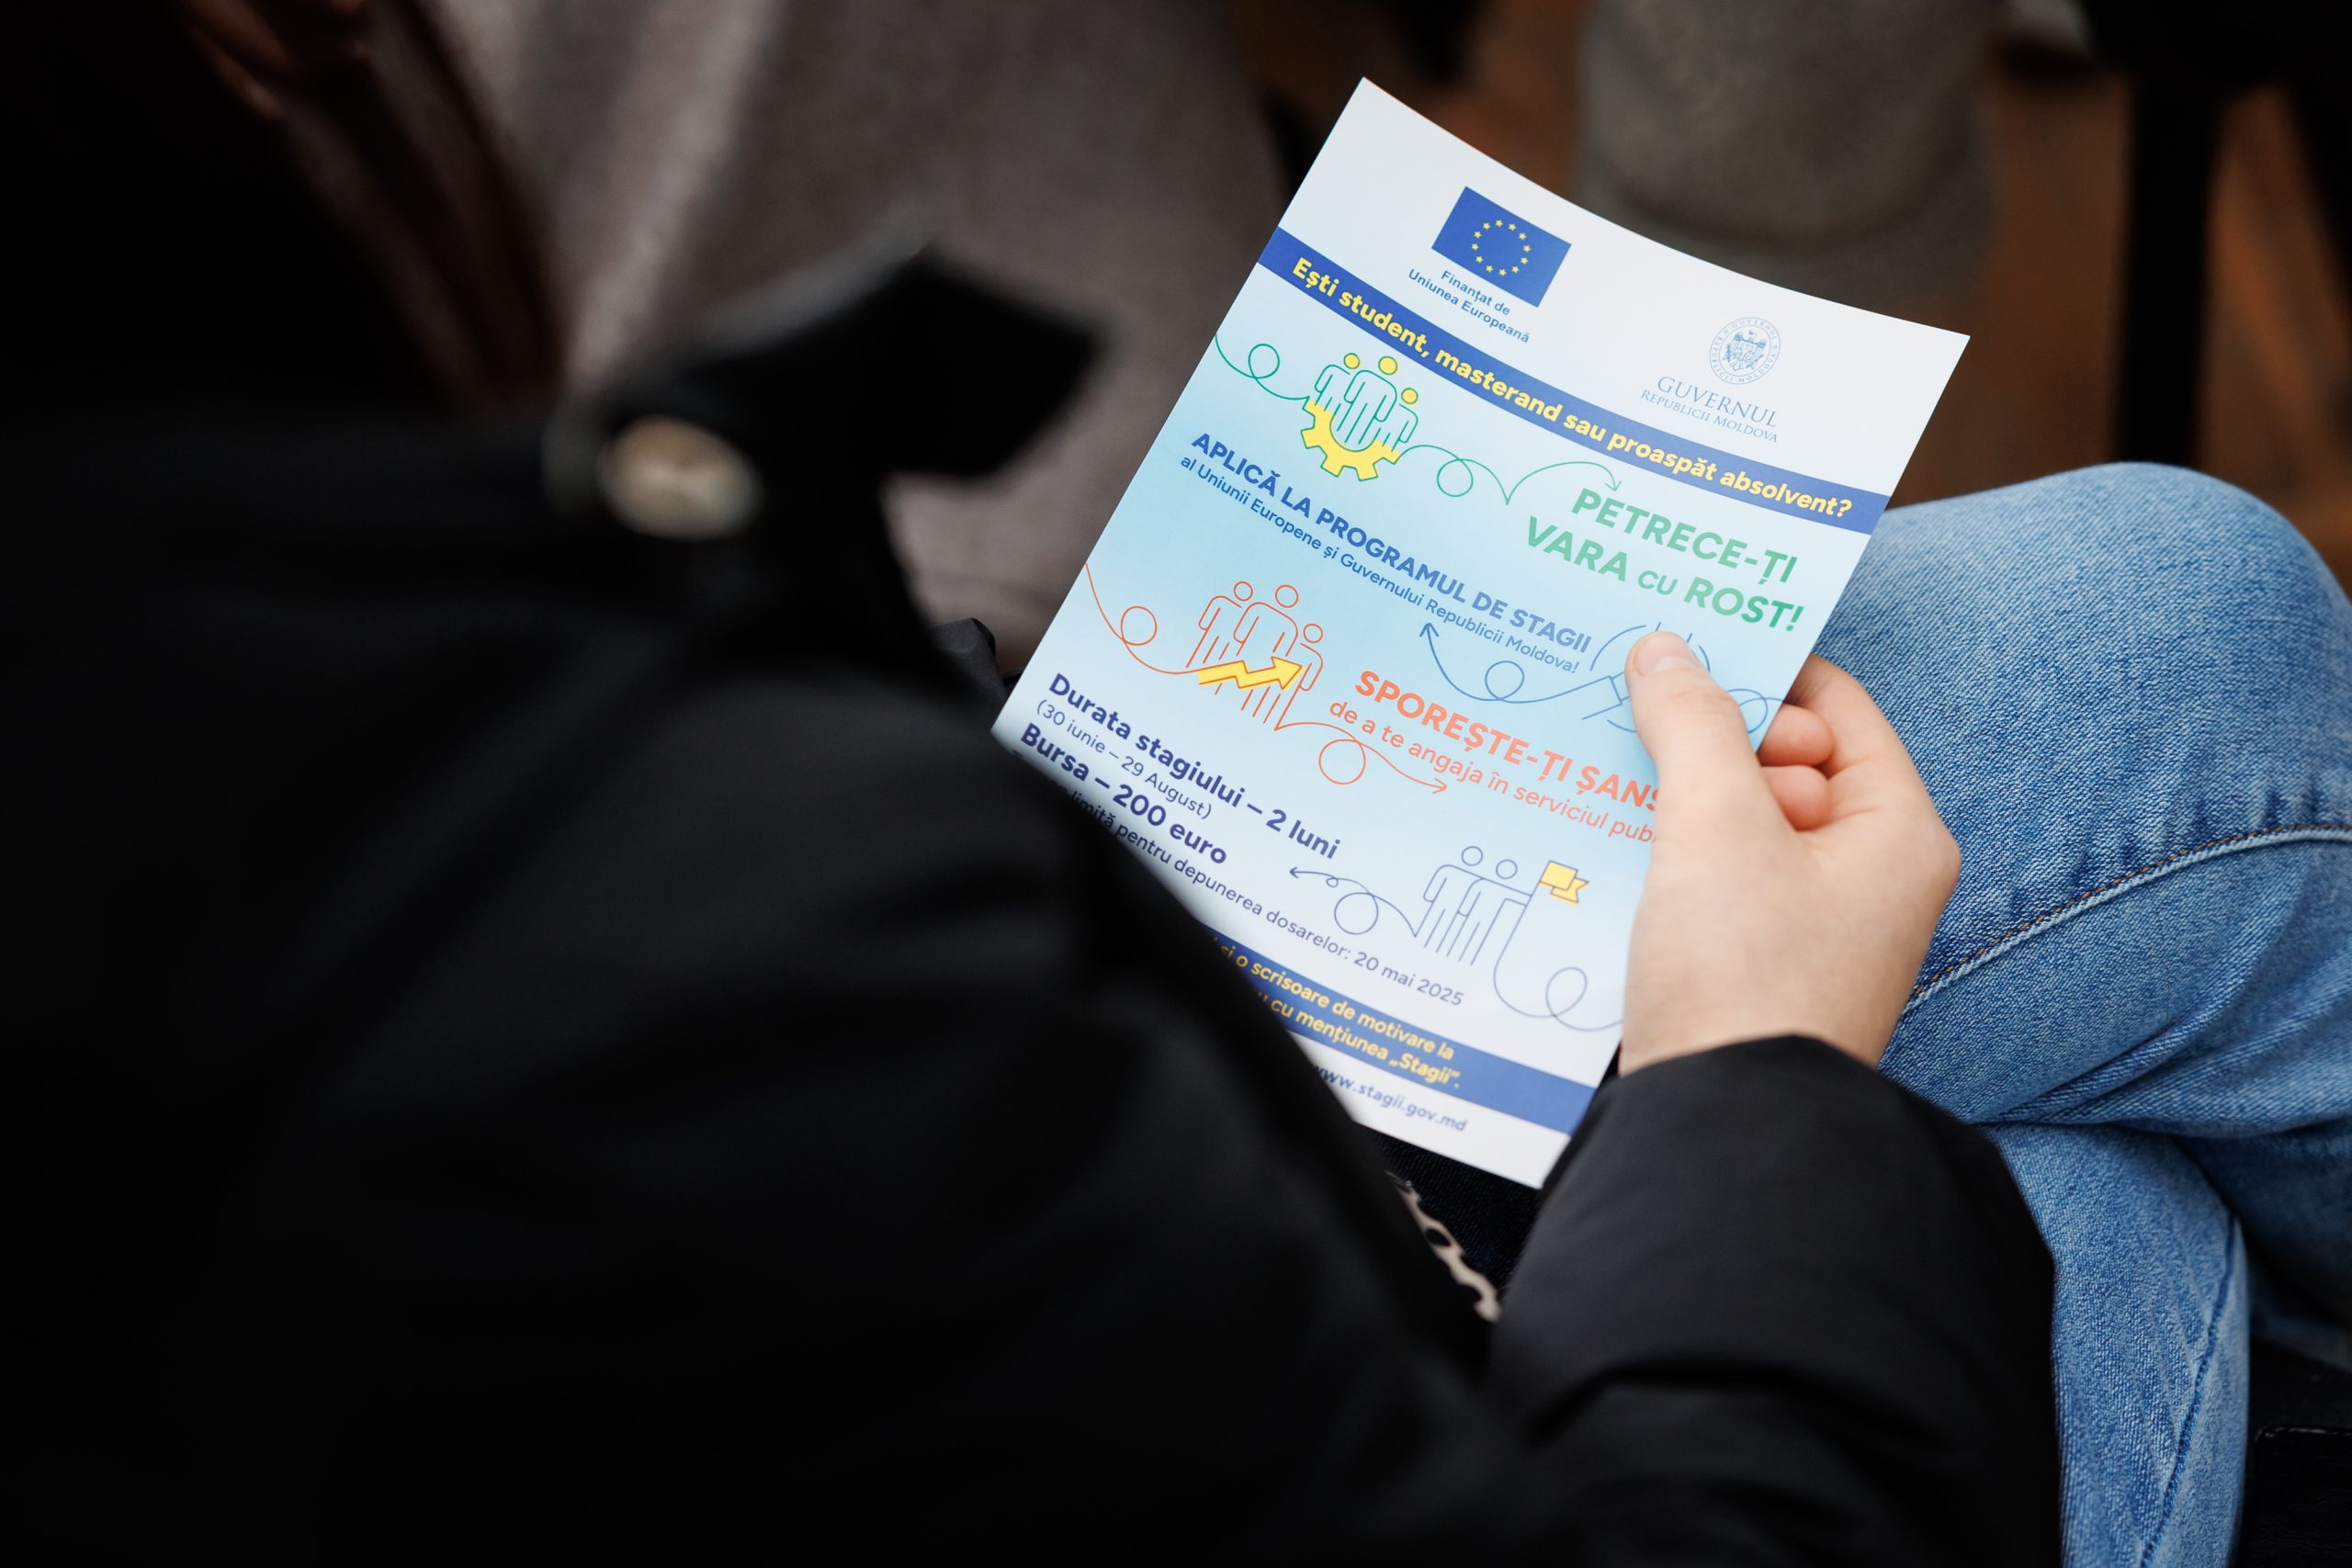 Finanțat de
Uniunea Europeană
GUVERNUL
REPUBLICII MOLDOVA
Ești student, masterand sau proaspăt absolvent?
PETRECE-ȚI
VARA CU ROST!
APLICĂ LA PROGRAMUL DE STAGII
al Uniunii Europene și Guvernului Republicii Moldova!
SPOREȘTE-ȚI
de a te angaja în serviciul
Durata stagiului – 2 luni
(30 iunie – 29 August)
Bursa – 200 euro
pentru depunerea dosarelor: 20 mai 2025
și o scrisoare de motivare la
cu mențiunea „Stagii”.
www.stagii.gov.md